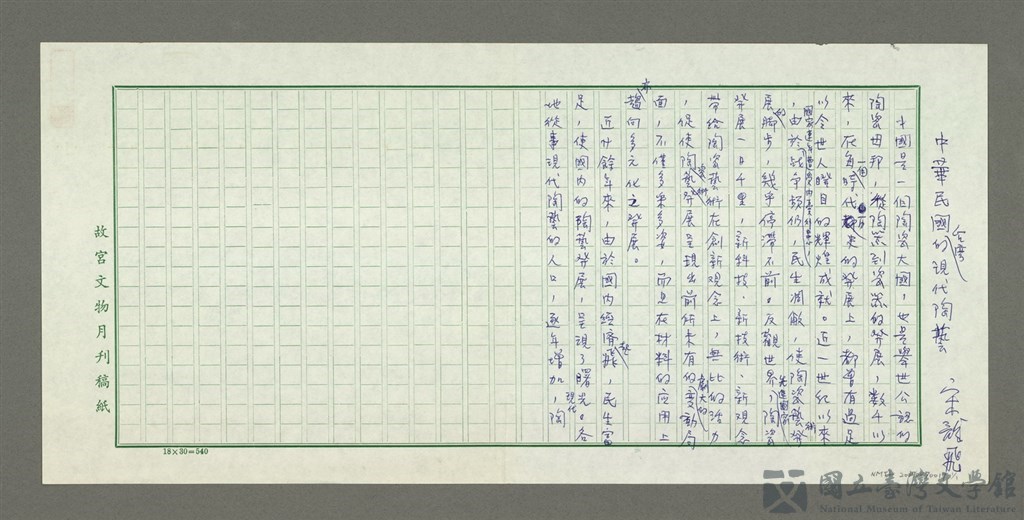 中華民國的現代陶藝 宋龍飛
台灣
中國是一個陶瓷大國，也是舉世公認的
陶瓷母邦，從陶器到瓷器的發展，數千年
來，在每一個時代的發展上，都曾有過足
以令世人瞪目的輝煌成就。近一世紀以來
，由於戰爭頻仍，民生凋敝，使陶瓷藝術發
展的腳步，幾乎停滯不前。反觀世界先進國家，陶瓷
發展一日千里，新科技、新技術、新觀念
帶給陶瓷藝術在創新觀念上，無比的活力
，促使陶瓷藝術發展呈現出前所未有的劇大的變動局
面，不僅多采多姿，而且在材料的應用上
亦趨向多元化之發展。
近廿餘年來，由於國內經濟起飛，民生富
足，使國內的陶藝發展，呈現了曙光。各
地從事現代陶藝的人口，逐年增加，現代陶
故宮文物月刊稿紙
18×30=540
國立臺灣文學館
National Museum of Taiwan Literature